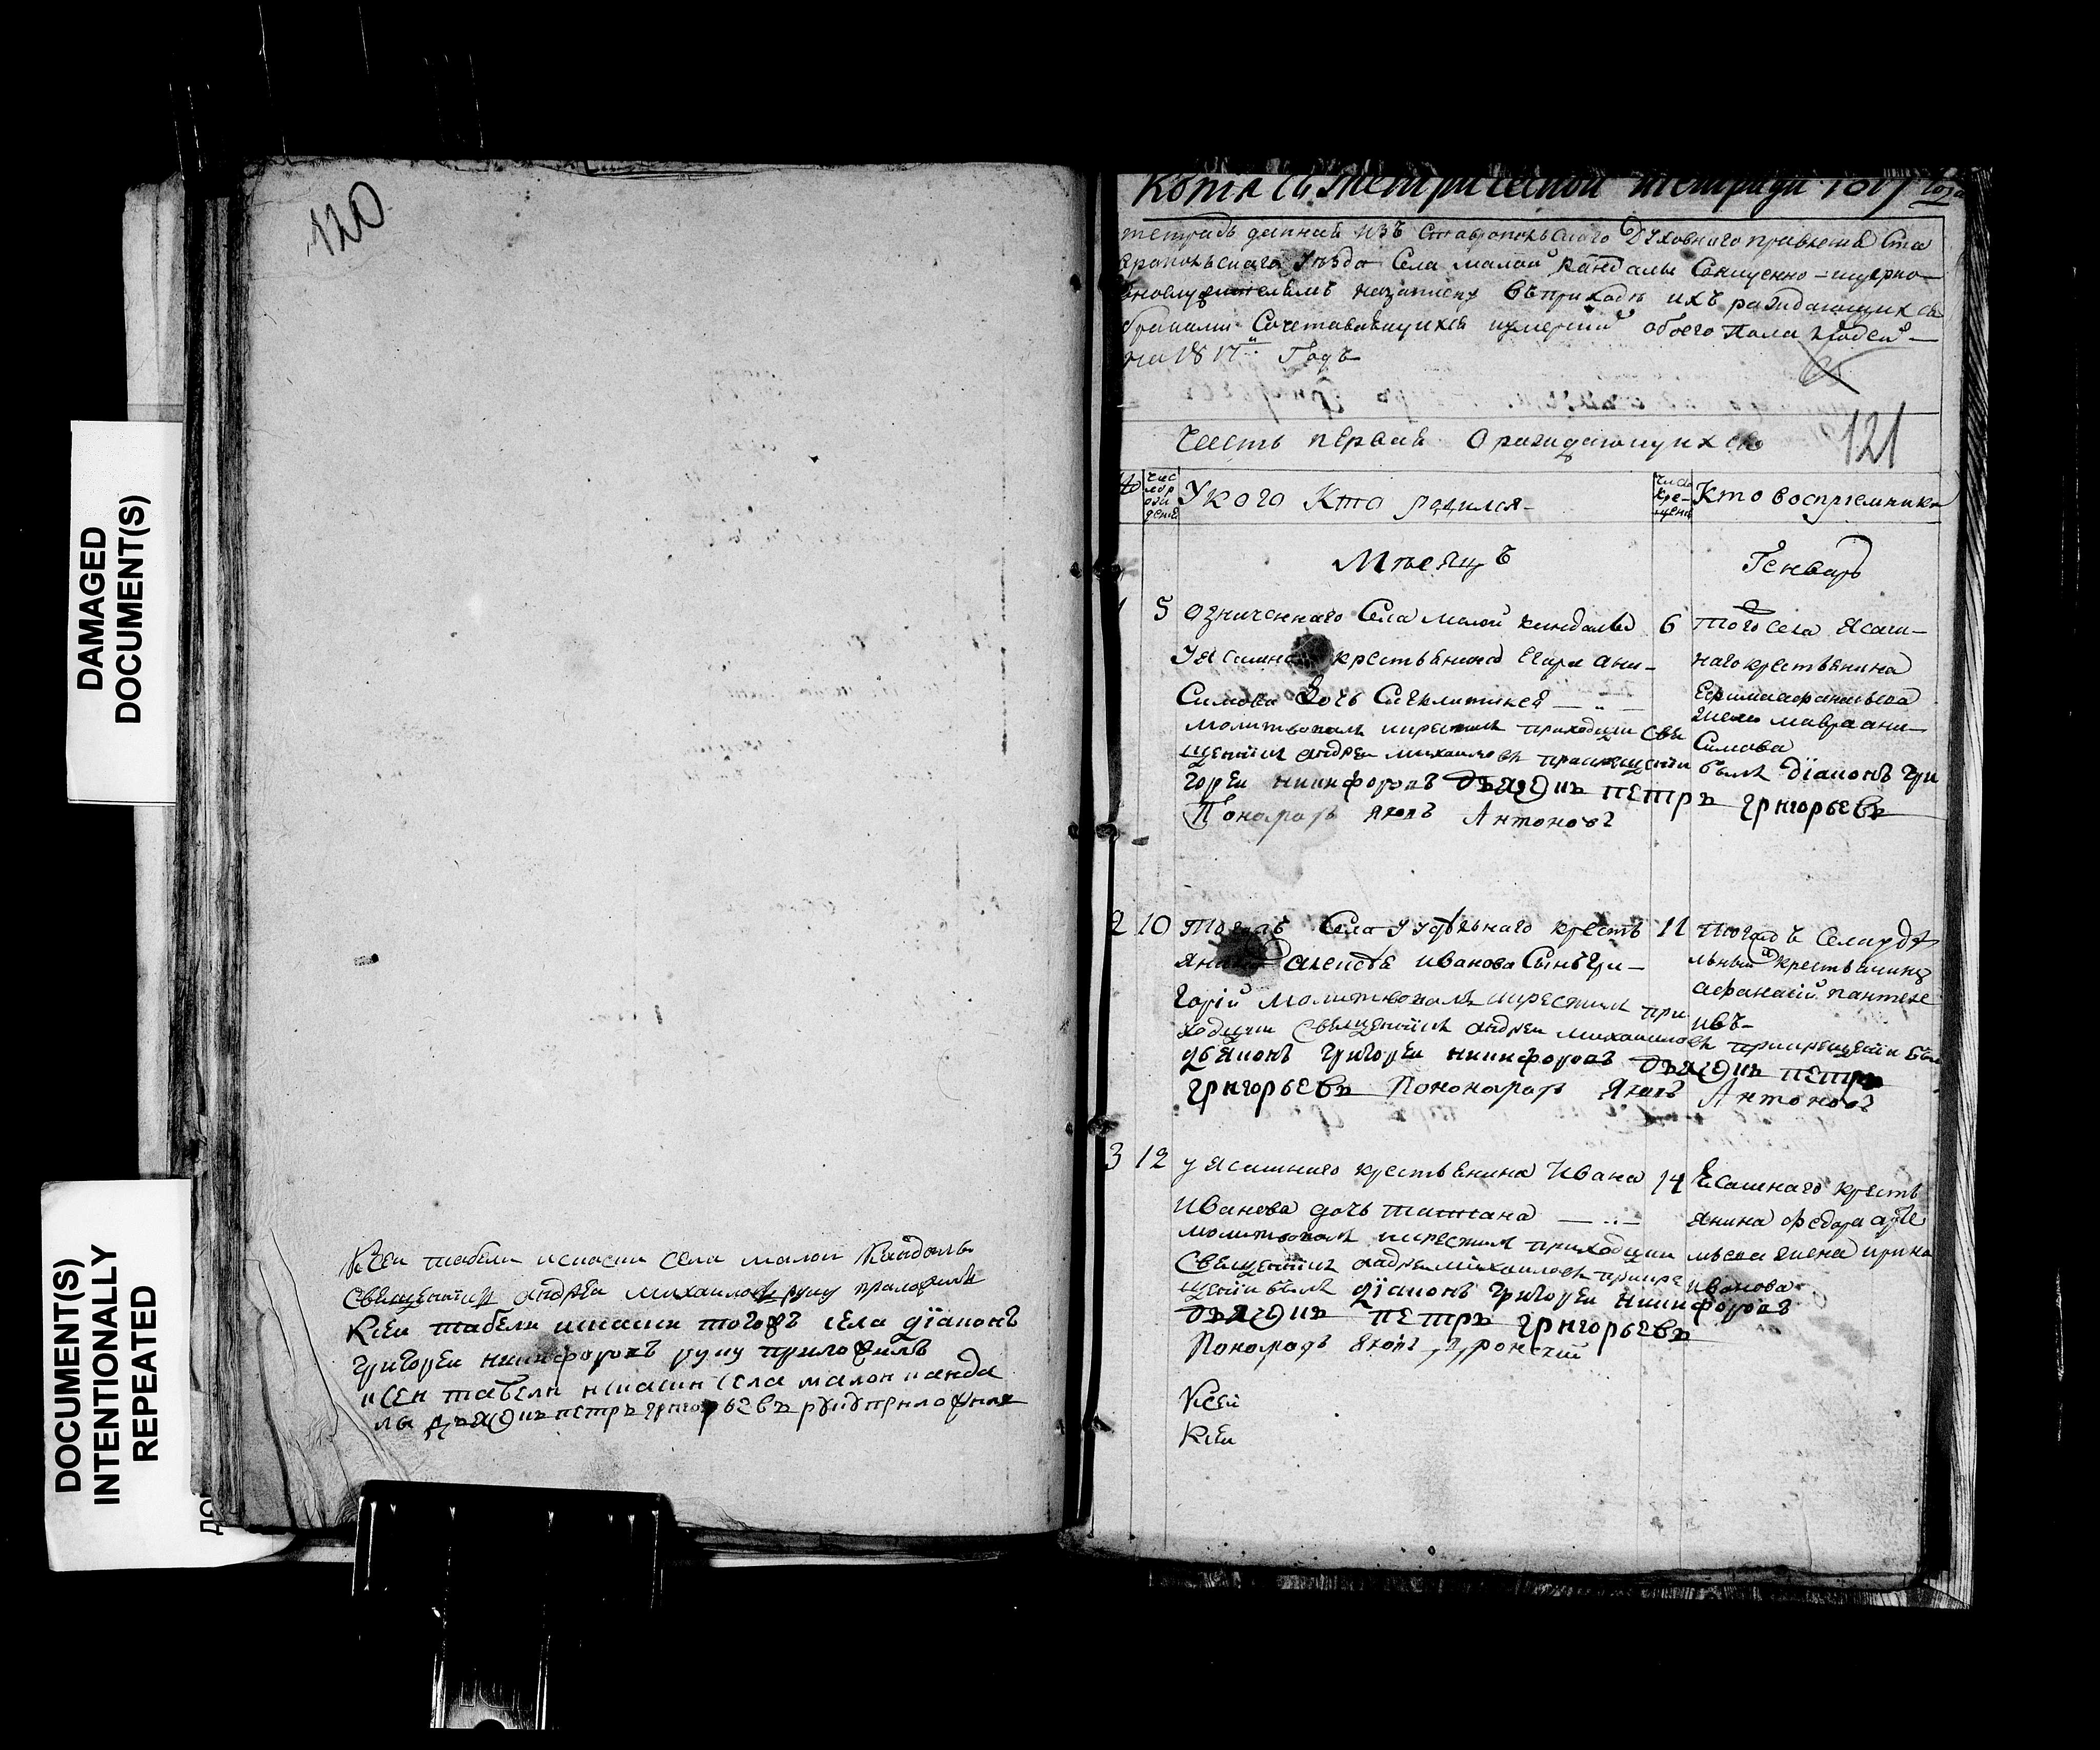 DAMAGED
DOCUMENT(S)
DOCUMENT(S)
INTENTIONALLY
REPEATED
120
Ксеи табели села малои Кандалы
священникъ андреи михаиловъ руку приложилъ
Ксеи табели тогожъ села діаконъ
григореи никифоровъ руку приложилъ
ксеи табели села малои канда
лы дьячокъ петръ григорьевъ руку приложилъ
Копія съ метрической тетради 1817 года
тетрадь данная изъ Ставропольскаго Духовнаго правленія Ста
вропольскаго уезда Села малой Кандалы Священно-церко
вно служителямъ на записку въ приходе ихъ раждающихся
браками Сочетавающихся и умерших обоего пола людей
на 1817й Годъ
121
Часть первая О раждающихся
№
чис
ло р
ож
дения
У кого Кто родился
число
кре-
щения
Кто восприемники
Месяцъ
Генварь
1
5
Означеннаго Села малой кандалы
У ясашнаго крестьянина Егора ани-
симова дочь Сигклитикея
молитвовалъ и крестилъ приходски свя
щенникъ андреи михаиловъ при крещении
былъ діаконъ гри
гореи никифоровъ дьячокъ петръ григорьевъ
Пономарь яковъ Антоновъ
6
того села ясаш-
наго крестьянина
Ефима афанасьева
жена мавра ани-
симова
2
10
Тогожъ Села у удельнаго кресть
янина алексея иванова Сынъ Гри-
горій молитвовалъ и крестилъ при
ходски священникъ андреи михаиловъ при крещении былъ
дьяконъ григореи никифоровъ дьячокъ петръ
григорьевъ Пономарь Яковъ Антоновъ
11
тогожъ села уде
льный крестьянинъ
афанасий пантеле
ивъ
3
12
у ясашнаго крестьянина Ивана
Иванова дочь татиана
молитвовалъ и крестилъ приходски
священникъ андреи михаиловъ при кре
щении былъ діаконъ григореи никифоровъ
дьячокъ петръ григорьевъ
Пономарь яковъ
14
Ясашнаго кресть
янина федора
жена ирина
иванова
Ксеи
Ксеи